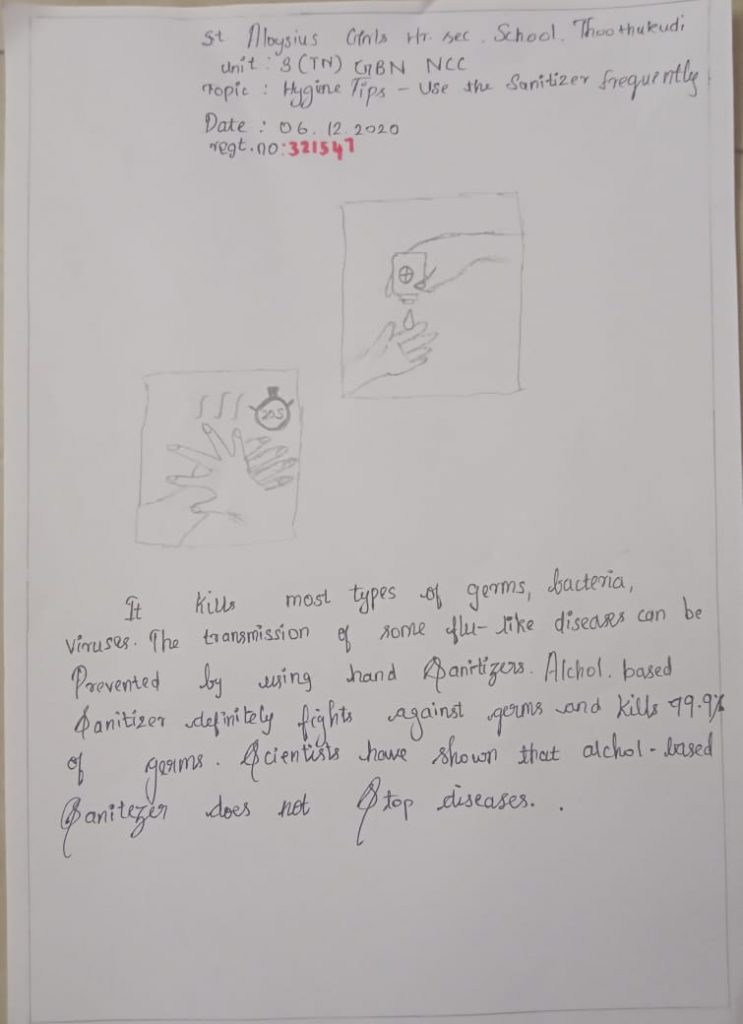 St Aloysius Girls Hr. sec. School. Thoothukudi
Unit : 3 (TN) GBN NCC
Topic : Hygine Tips - Use the Sanitizer frequently
Date : 06.12.2020
regt.no:321547
20S
It kills most types of germs, bacteria,
viruses. The transmission of some flu-like diseases can be
Prevented by using hand Sanitizers. Alchol. based
Sanitizer definitely fights against germs and kills 99.9%
of germs. Scientists have shown that alchol-based
Sanitezer does not Stop diseases. .